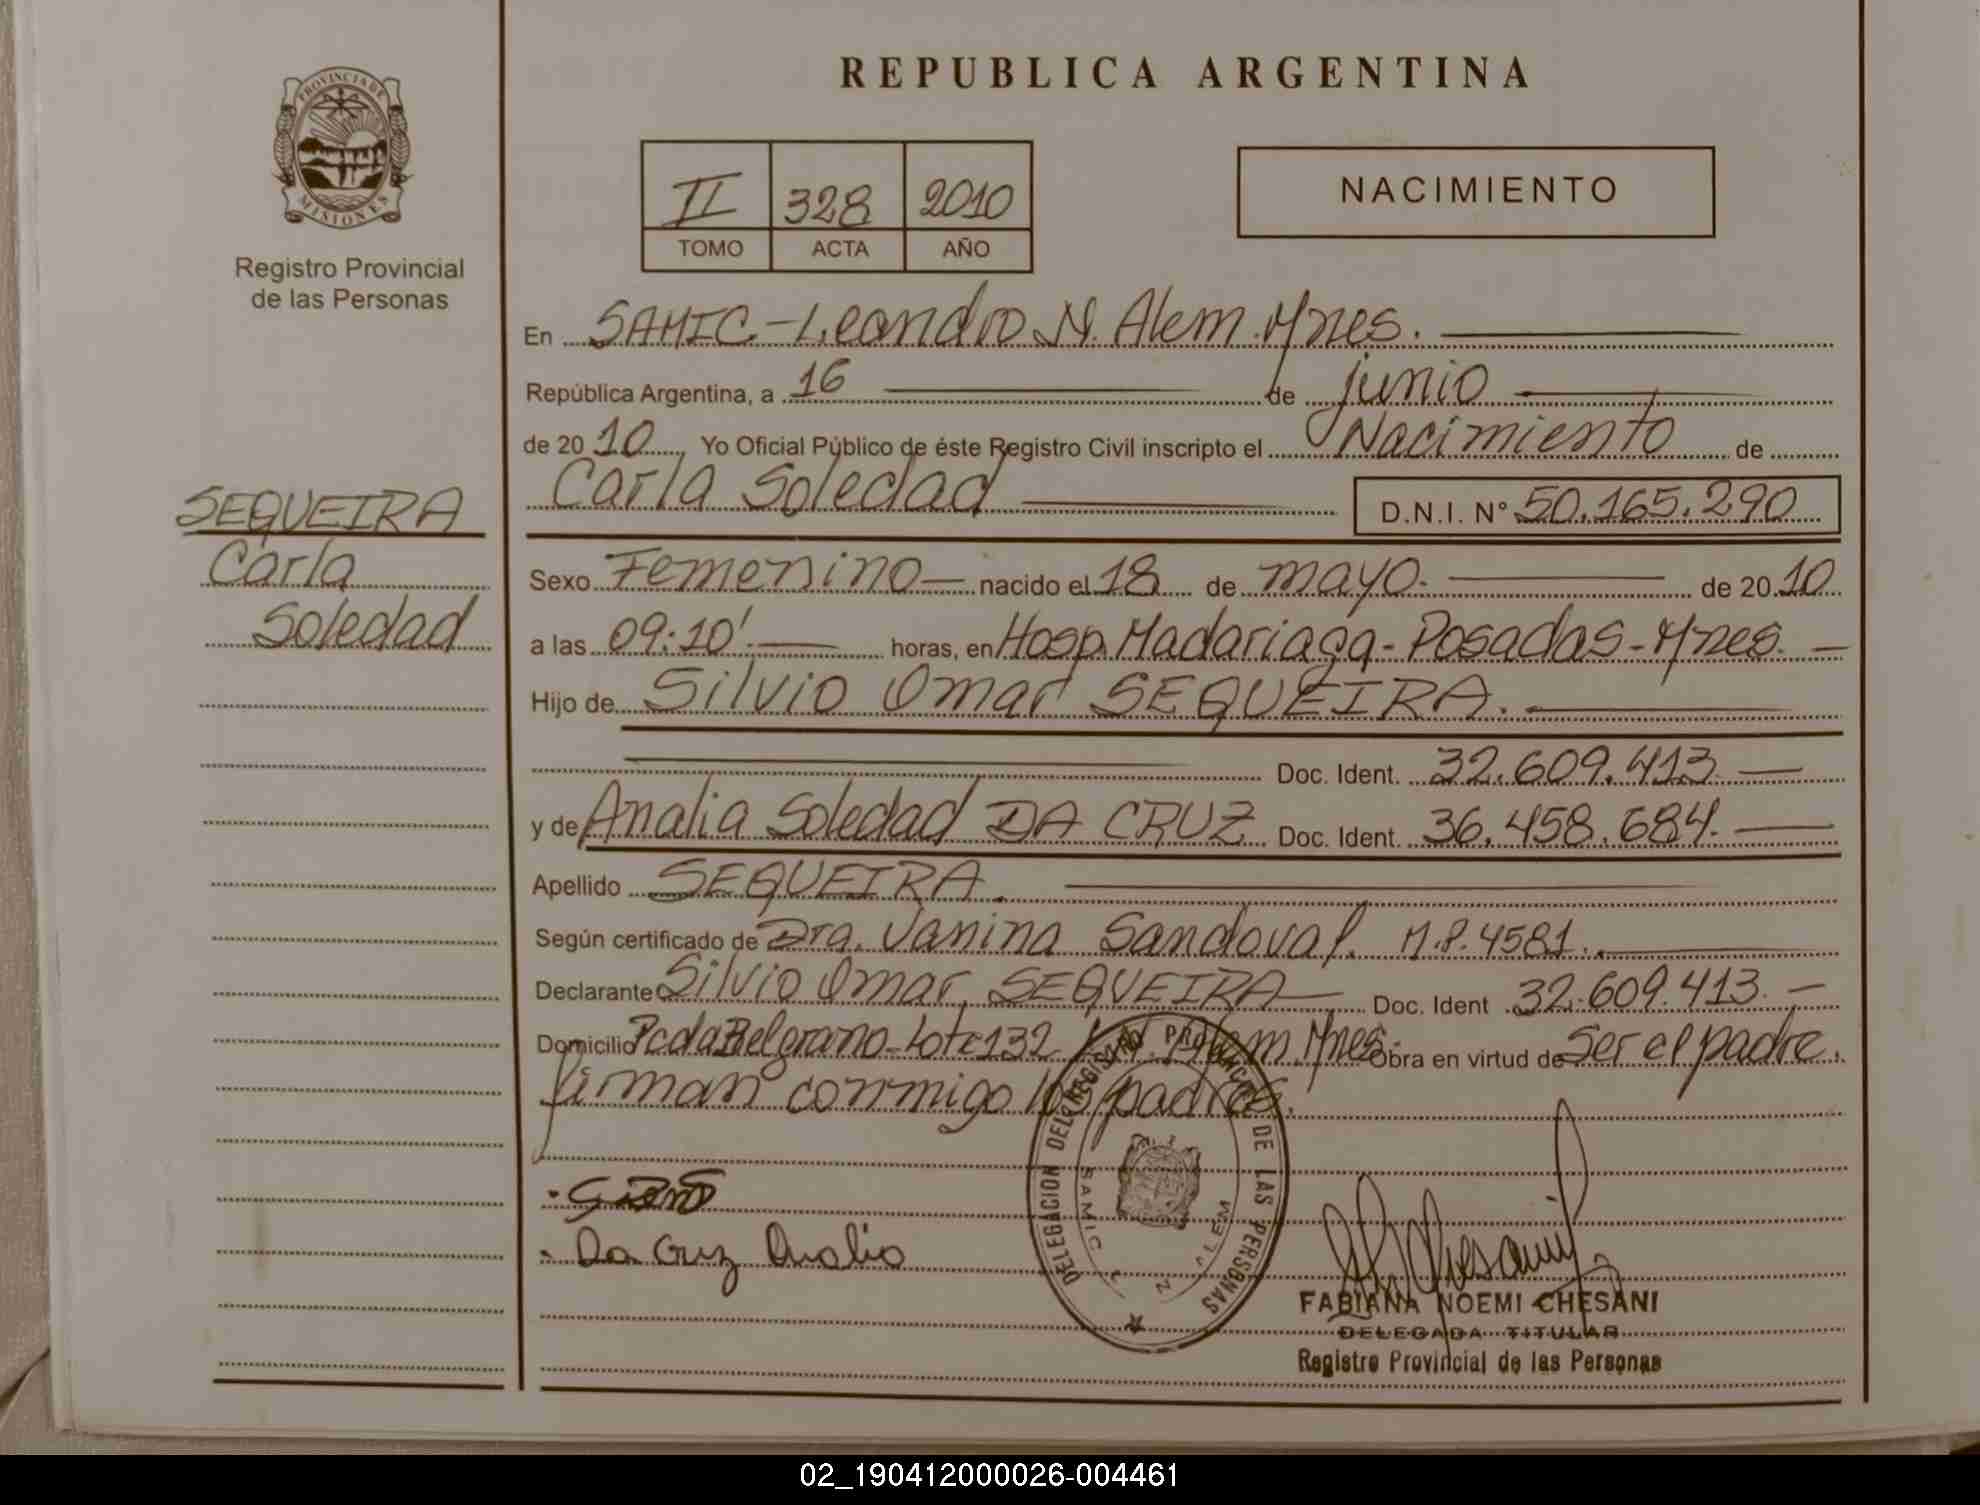 REPUBLICA ARGENTINA
PROVINCIA DE
MISIONES
Registro Provincial
de las Personas
II 328 2010
TOMO ACTA AÑO
NACIMIENTO
En SAMIC - Leandro N. Alem. Mnes.
República Argentina, a 16 de junio
de 2010 Yo Oficial Público de éste Registro Civil inscripto el Nacimiento de
Carla Soledad D.N.I. N° 50.165.290
SEQUEIRA
Carla
Soledad
Sexo Femenino nacido el 18 de mayo. de 2010
a las 09:10' horas, en Hosp. Madariaga - Posadas - Mnes.
Hijo de Silvio Omar SEQUEIRA.
Doc. Ident. 32.609.413
y de Analia Soledad DA CRUZ Doc. Ident. 36.458.684.
Apellido SEQUEIRA.
Según certificado de Dra. Janina Sandoval. M.P. 4581.
Declarante Silvio Omar SEQUEIRA Doc. Ident 32.609.413.
Domicilio Pcda Belgrano - Lote 132 Alem. Mnes. Obra en virtud de Ser el padre.
firman conmigo los padres.
Da Cruz Analia
DELEGACION DEL REGISTRO PROVINCIAL DE LAS PERSONAS
SAMIC L N ALEM
FABIANA NOEMI CHESANI
DELEGADA TITULAR
Registro Provincial de las Personas
02_190412000026-004461